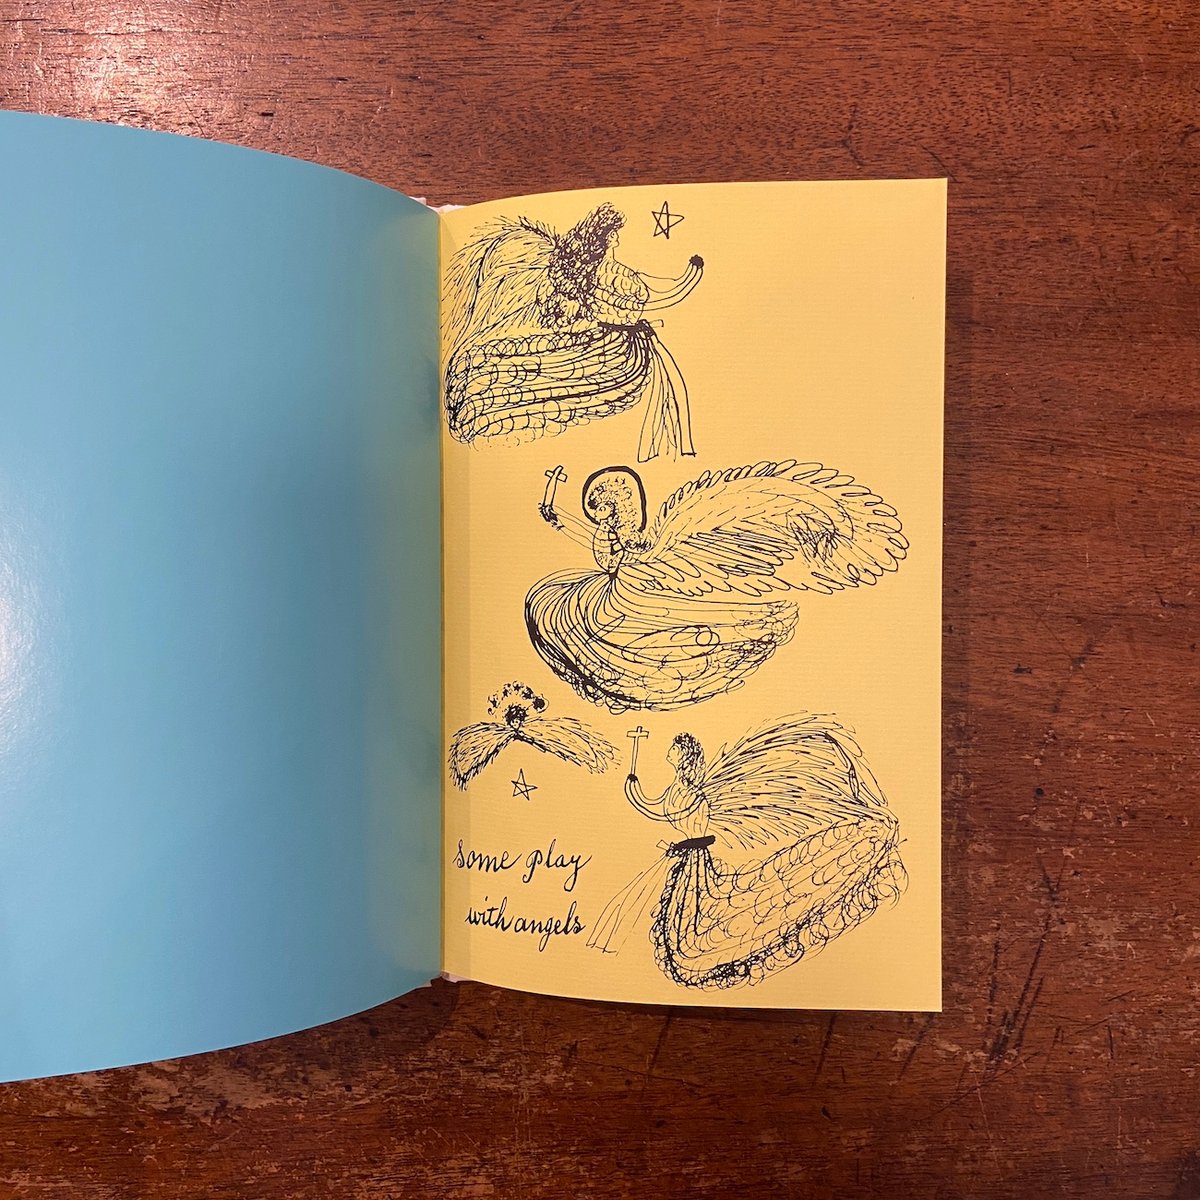 some play
with angels